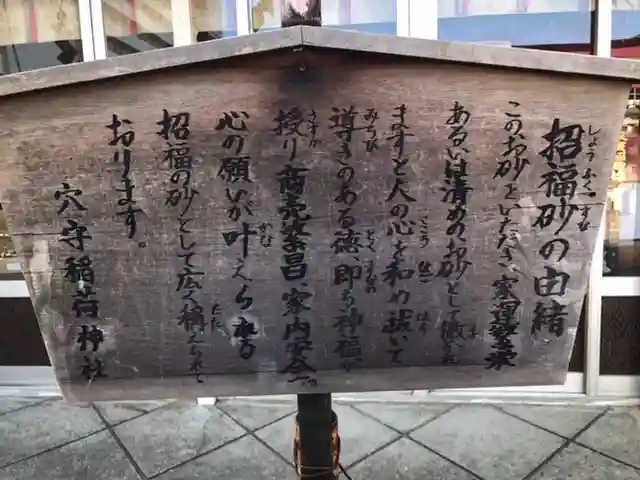 招福砂の由緒
しょうふくすな
このお砂をいただき、家運繁栄
あるいは清めのお砂として撒かれ
ますと人の心を和め祓いて
導きのある徳、即ち神福が
みちび
授り商売繁昌、家内安全
さずか
心の願いが叶えられ
かな
招福の砂として広く称えられて
たた
おります。
穴守稲荷神社